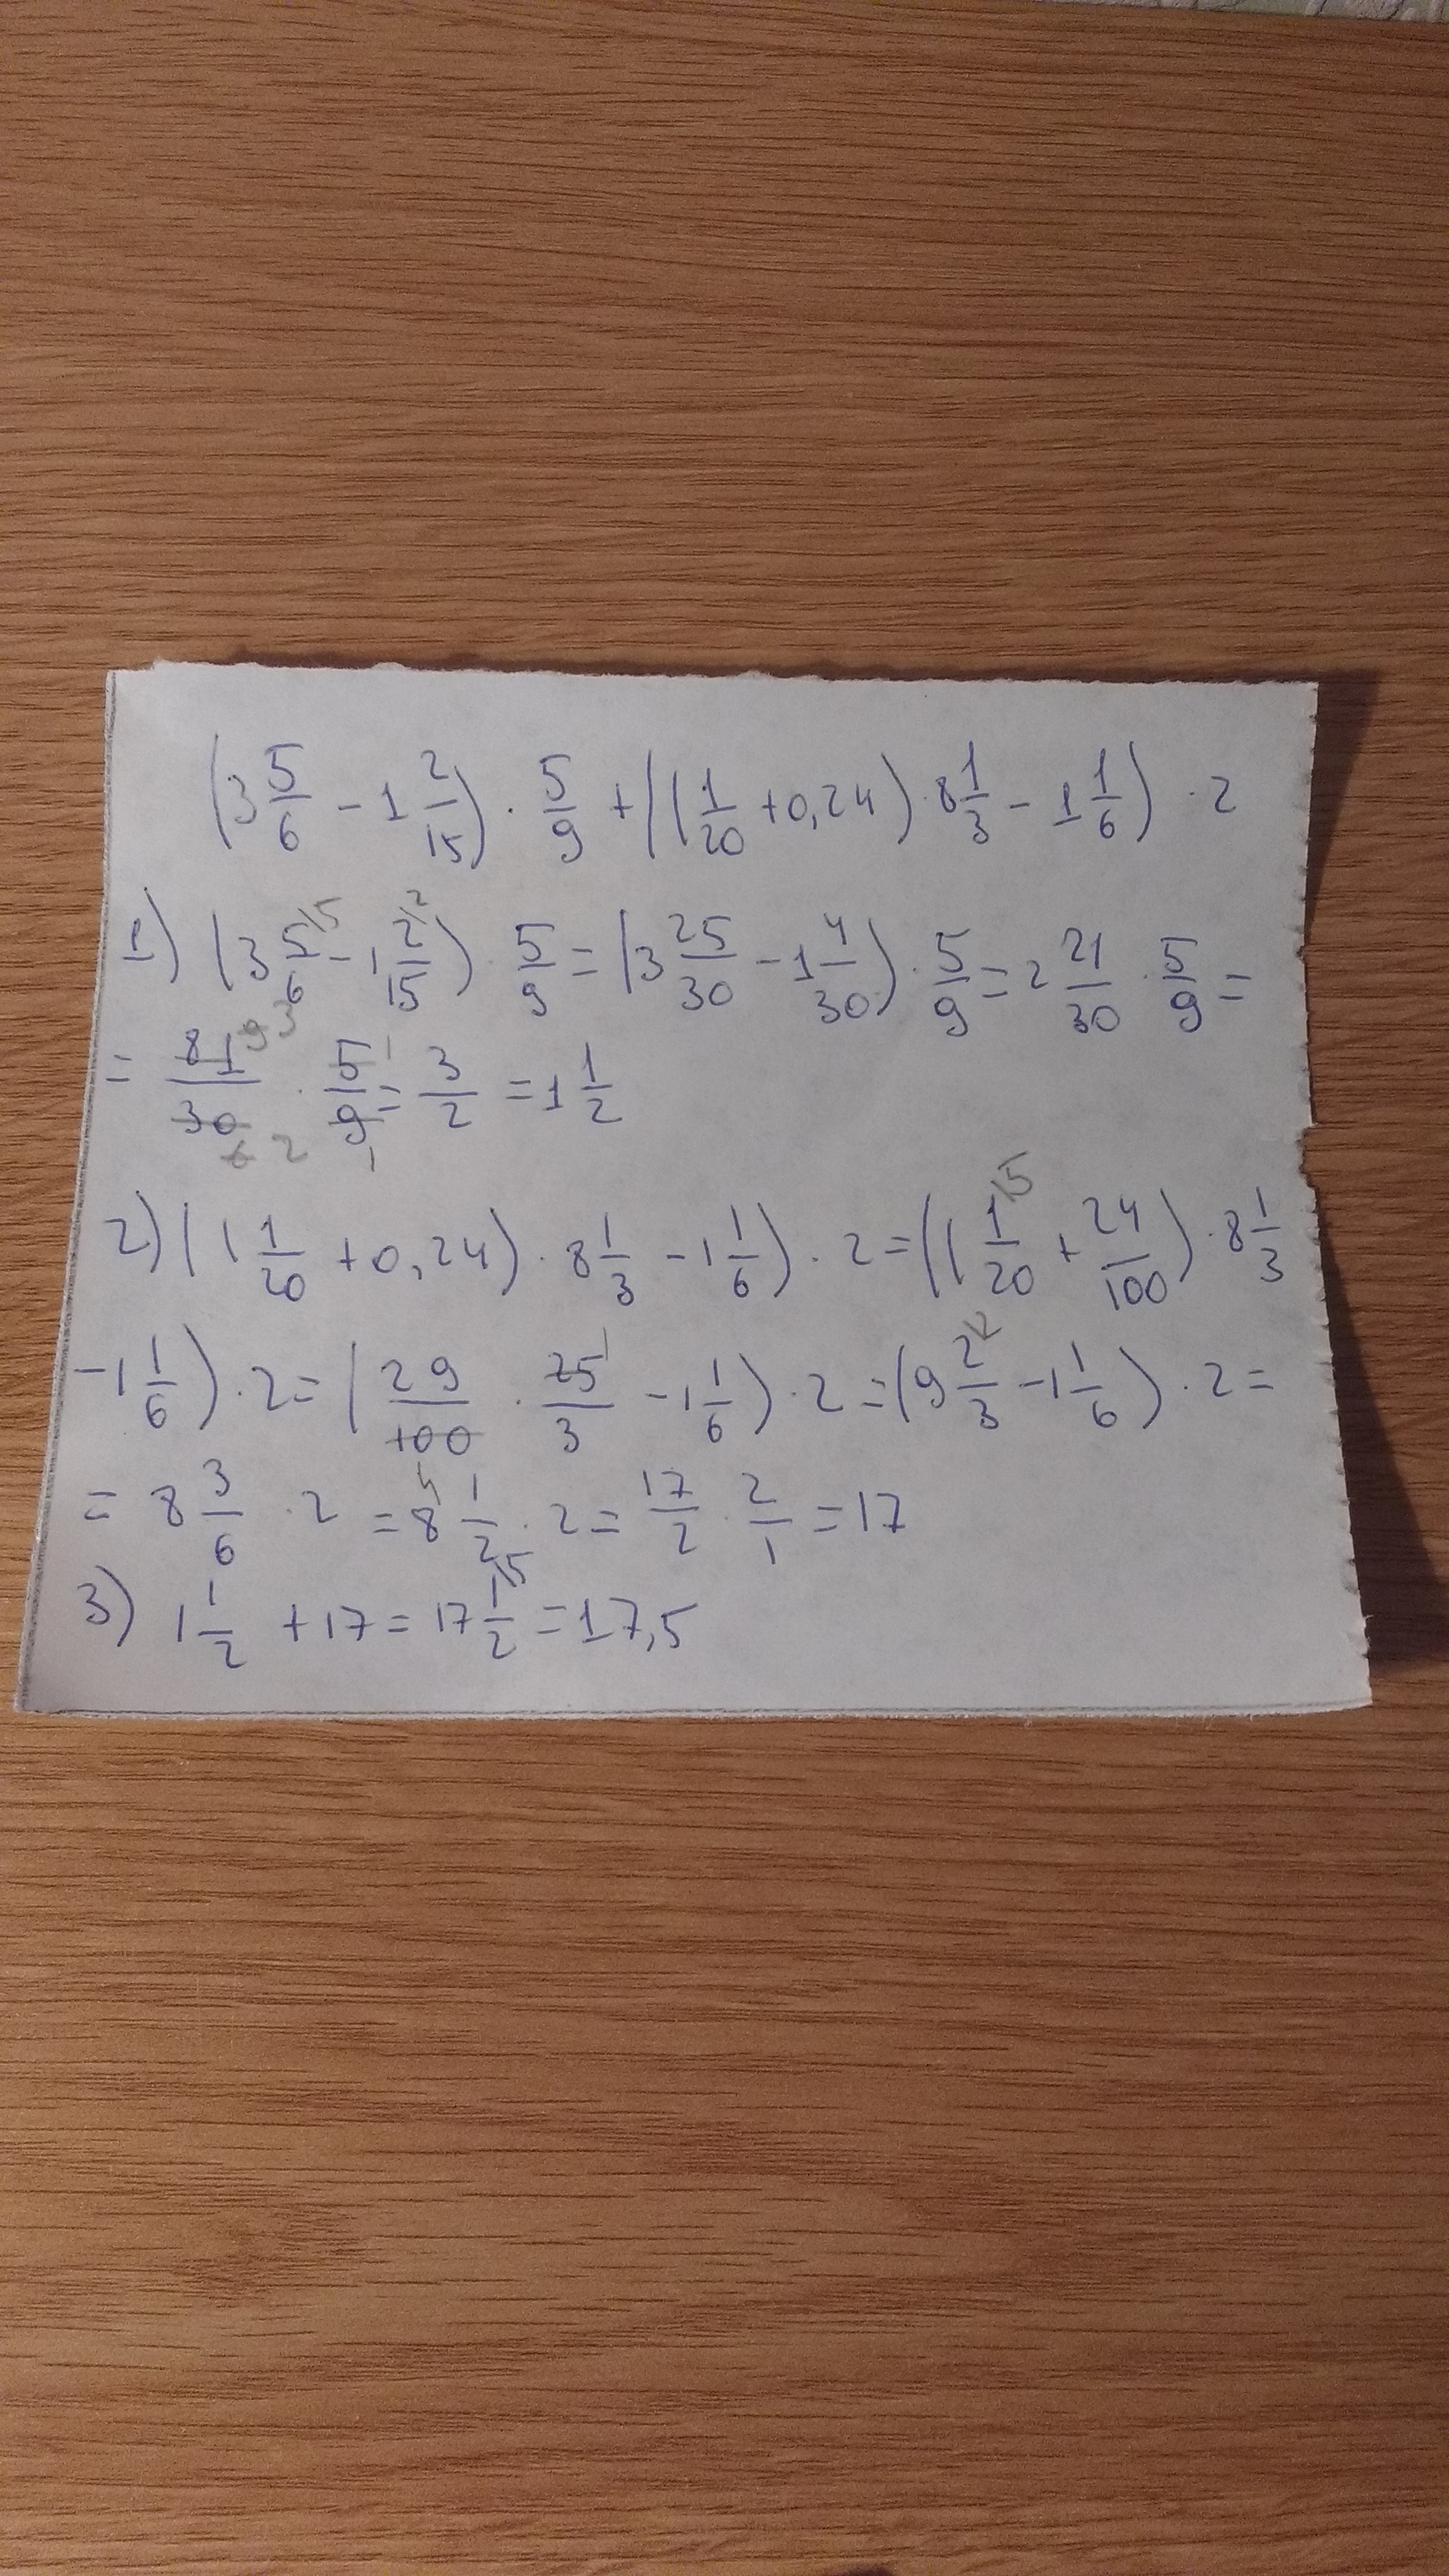 (3 5/6 - 1 2/15) · 5/9 + ((1/20 + 0,24) · 8 1/3 - 1 1/6) · 2
1) (3 5/6 \5 - 1 2/15 \2) · 5/9 = (3 25/30 - 1 4/30) · 5/9 = 2 21/30 · 5/9 =
= 81/30 9 3 6 2 · 5/9 1 1 = 3/2 = 1 1/2
2) ((1/20 + 0,24) · 8 1/3 - 1 1/6) · 2 = ((1/20 \5 + 24/100) · 8 1/3
- 1 1/6) · 2 = (29/100 4 · 25/3 1 - 1 1/6) · 2 = (9 2/3 \2 - 1 1/6) · 2 =
= 8 3/6 · 2 = 8 1/2 · 2 = 17/2 · 2/1 = 17
3) 1 1/2 + 17 = 17 1/2 \5 = 17,5